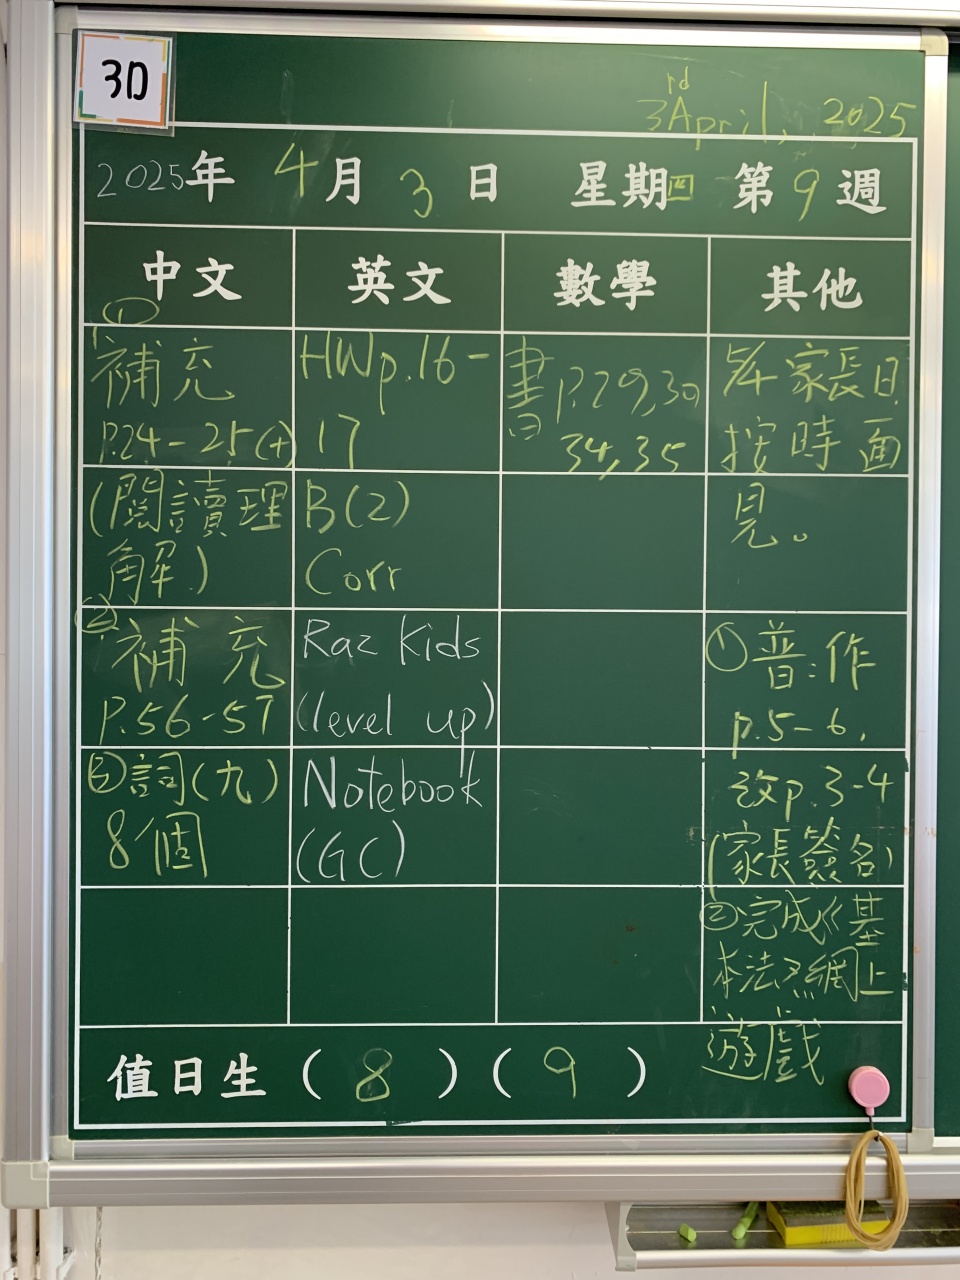 3D
3rd April, 2025
2025年 4月 3日 星期四 第9週
中文 英文 數學 其他
①
補充
P.24-25(+)
(閱讀理
解)
②
補充
P.56-57
③詞(九)
8個
HWp.16-
17
B(2)
Corr
Raz Kids
(level up)
Notebook
(GC)
書P.29,30
34,35
5/4 家長日
按時面
見。
①普:作
p.5-6,
改p.3-4
(家長簽名)
②完成《基
本法》網上
遊戲
值日生(8)(9)